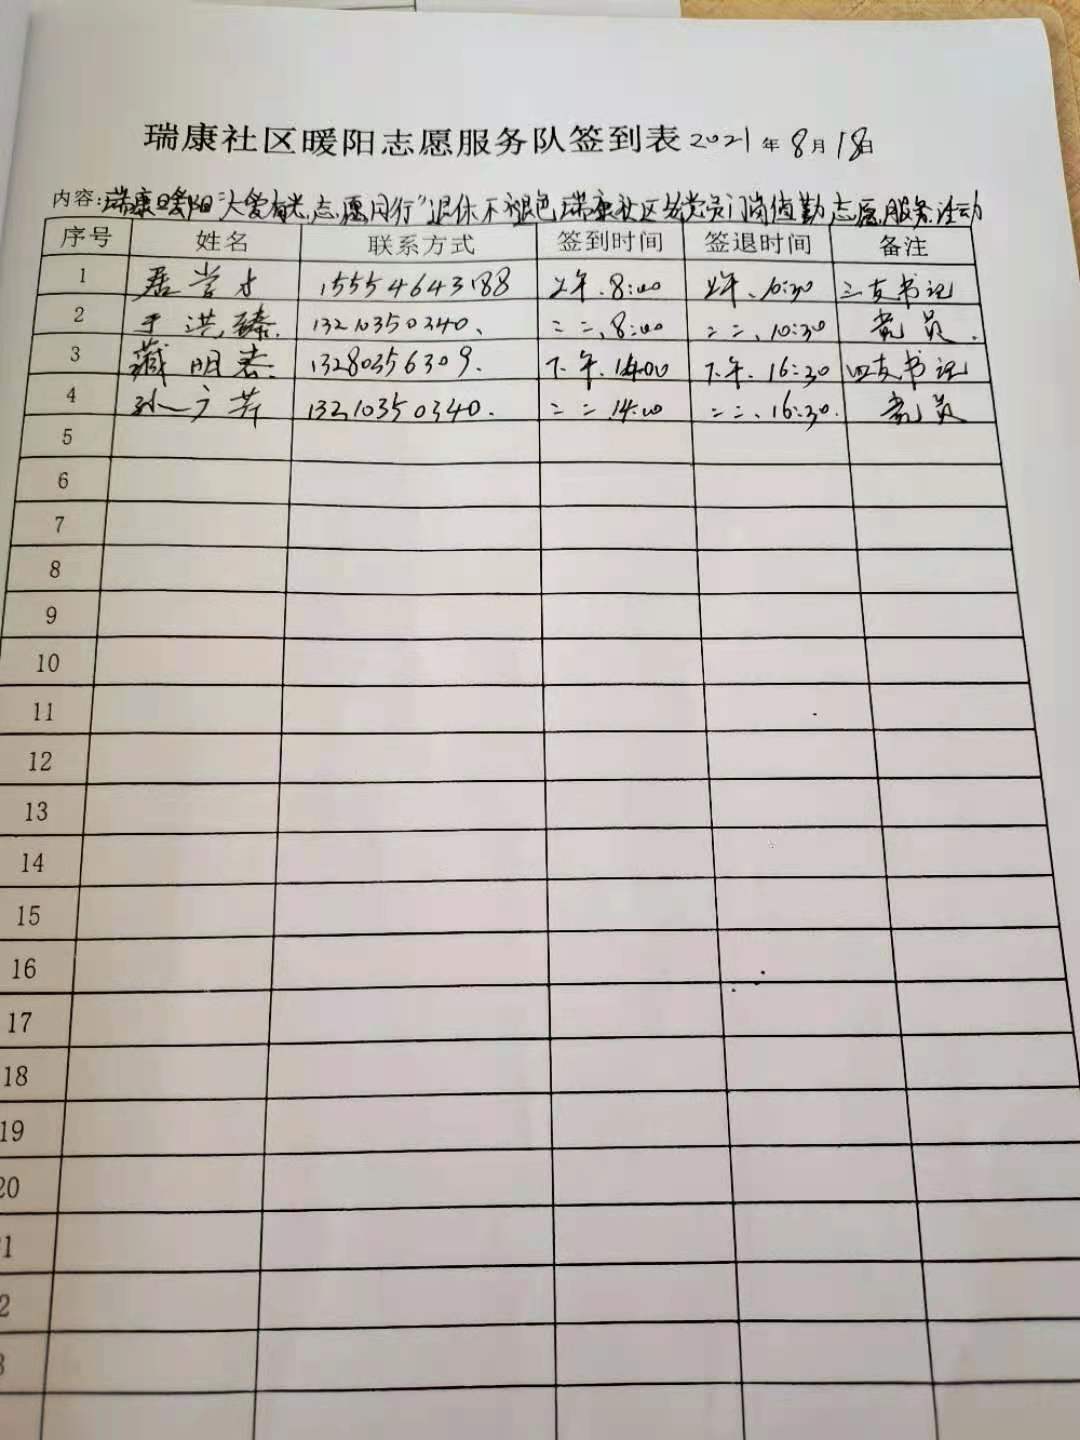 瑞康社区暖阳志愿服务队签到表 2021年8月18日
内容:瑞康暖阳"大爱有光,志愿同行"退休不褪色瑞康社区老党员门岗值勤志愿服务活动
序号 姓名 联系方式 签到时间 签退时间 备注
1 学才 15554643188 上午.8:00 上午.10:30 三支书记
2 于洪臻. 13210350340、 二二、8:00 二二、10:30 党员.
3 臧明 13280356309. 下午.14:00 下午.16:30 四支书记
4 孙广芹 13210350340. 二二 14:00 二二、16:30. 党员
5
6
7
8
9
10
11
12
13
14
15
16
17
18
19
20
1
2
3